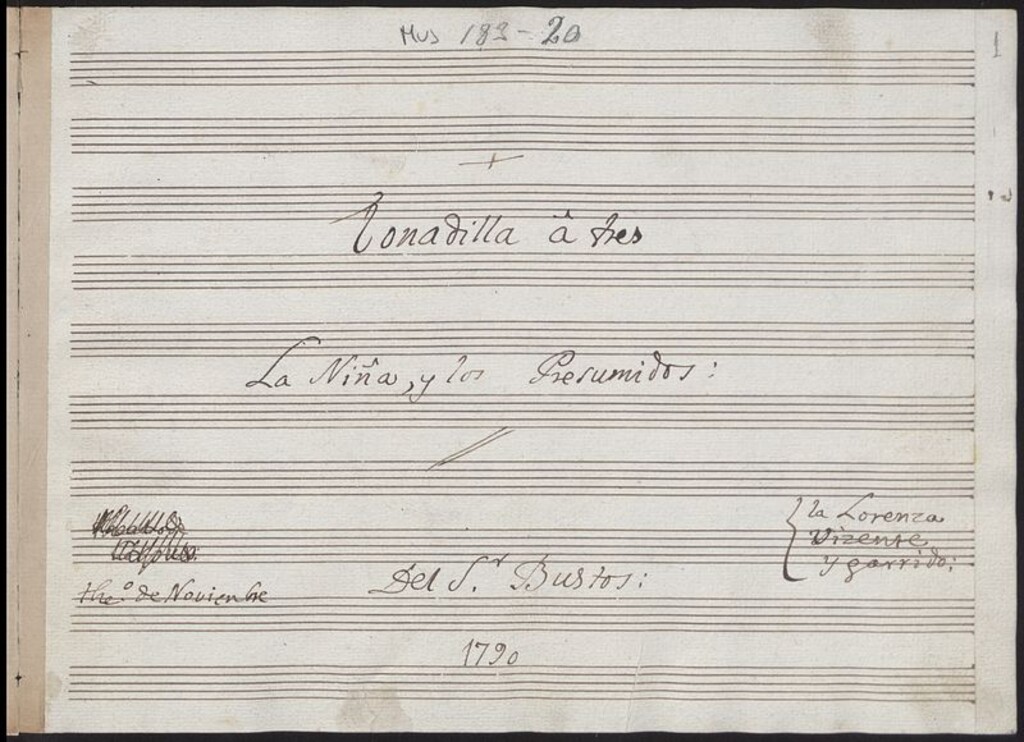 Mus 183-20
1
Tonadilla â tres
La Niña, y los Presumidos:
la Lorenza
Vizente
y garrido:
the.º de Novienbre
Del S.r Bustos:
1790